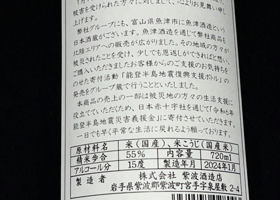 被害を受けられた方々に対して、心よりお見舞い申し
上げます。
弊社グループにも、富山県魚津市に魚津酒造という
日本酒蔵がございます。魚津酒造を通じて弊社商品も北
陸エリアへの販売が広がりました。その地域の方々が
被災されたことを受け、少しでも恩返しができればと想い、
ご購入いただきましたお客様からのご支援のお気持ちを
の寄付活動「能登半島地震復興支援ボトル」の
発売をグループ蔵で行うことといたしました。
本商品の売上の一部は被災地の方々の生活支援に
役立てていただくため、日本赤十字社を通じて「令和6年
能登半島地震災害義援金」に寄付させていただきます。
一日でも早く平常な生活に戻れるよう願っております。
原材料名 米(国産)、米こうじ(国産米)
精米歩合 55% 内容量 720ml
アルコール分 15度 製造年月 2024年1月
製造者 株式会社 紫波酒造店
岩手県紫波郡紫波町宮手字泉屋敷 2-4